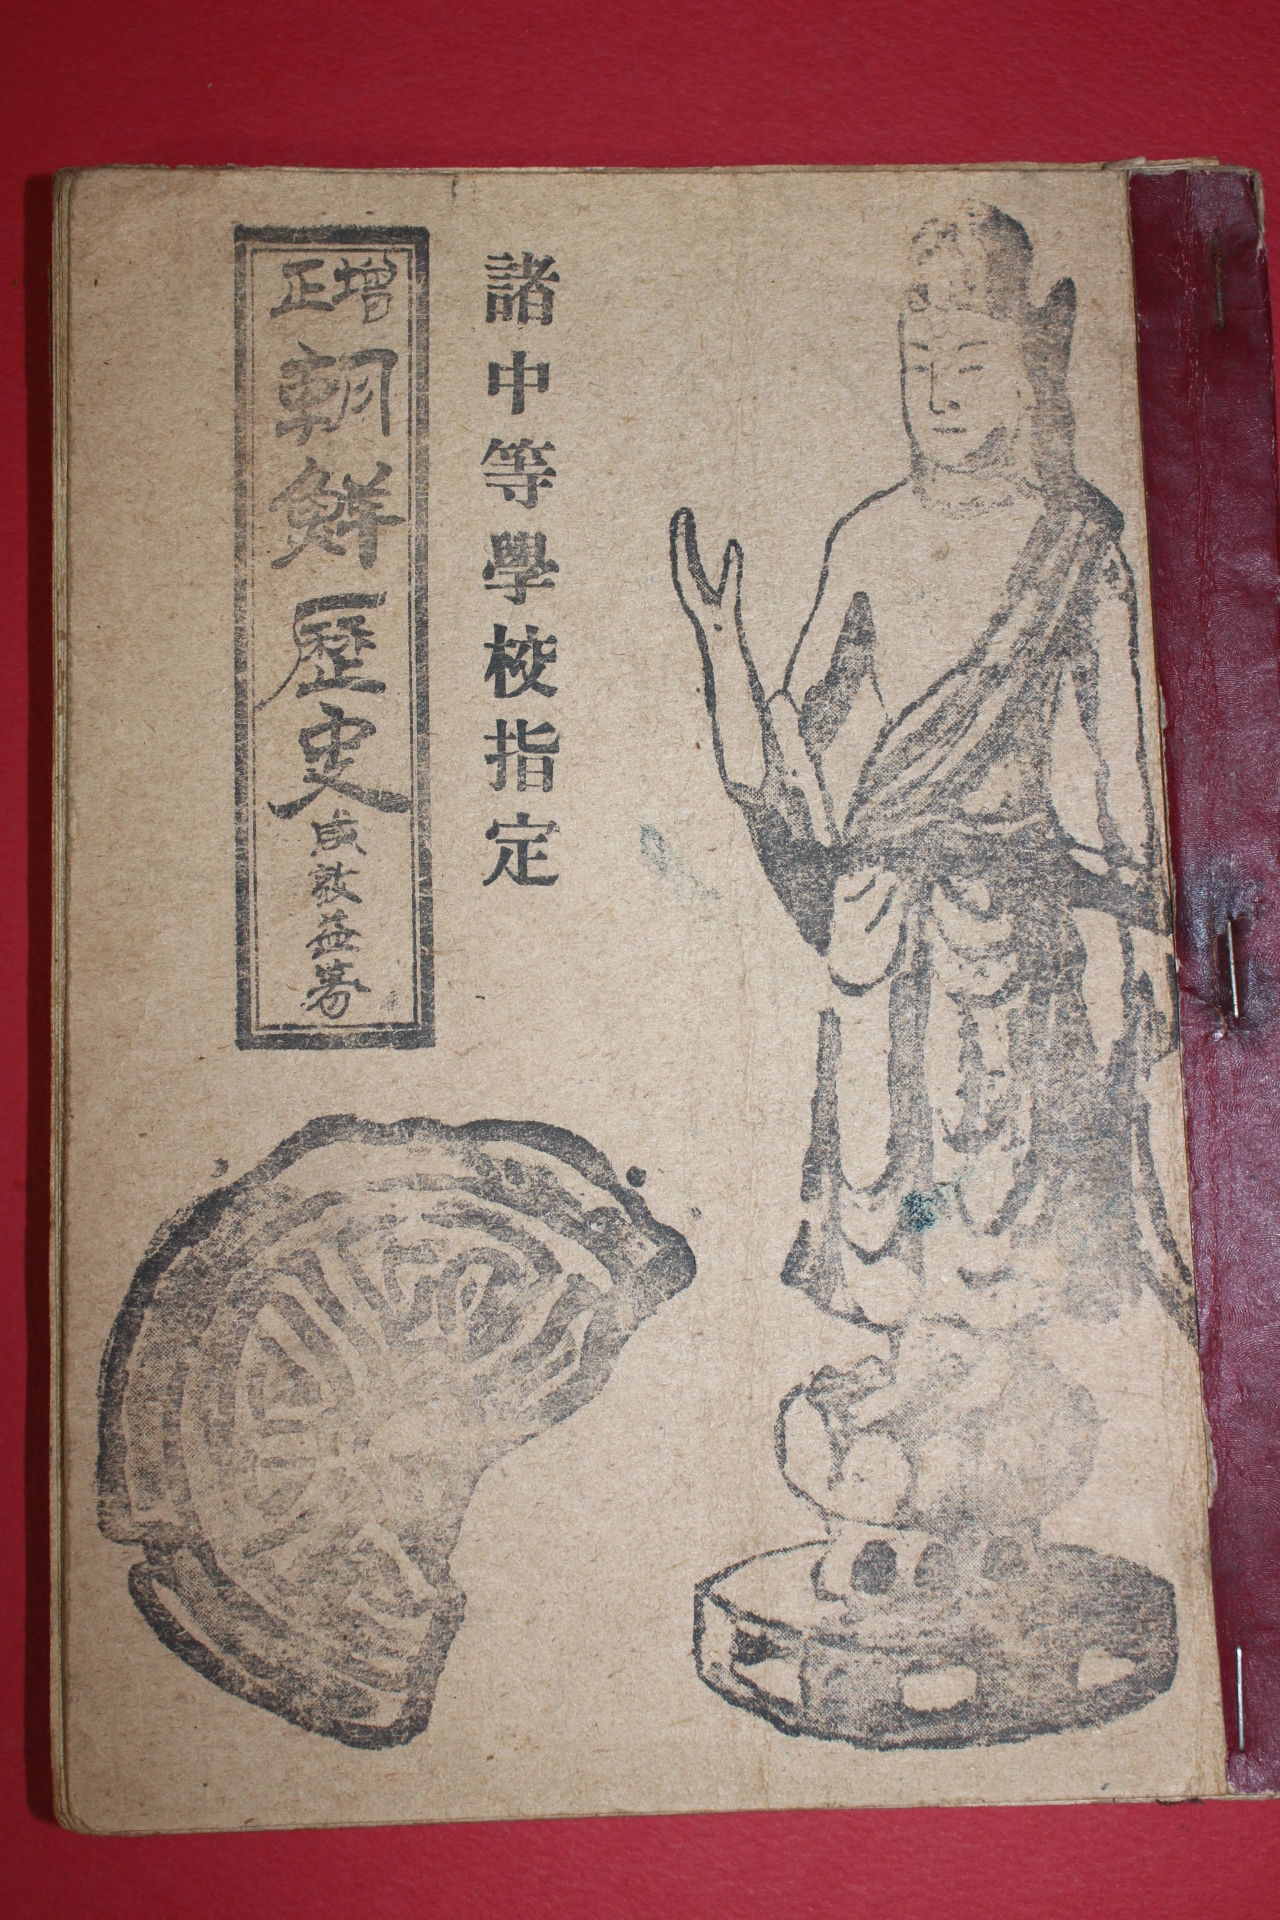 諸中等學校指定
增正
朝鮮歷史
咸敦益著